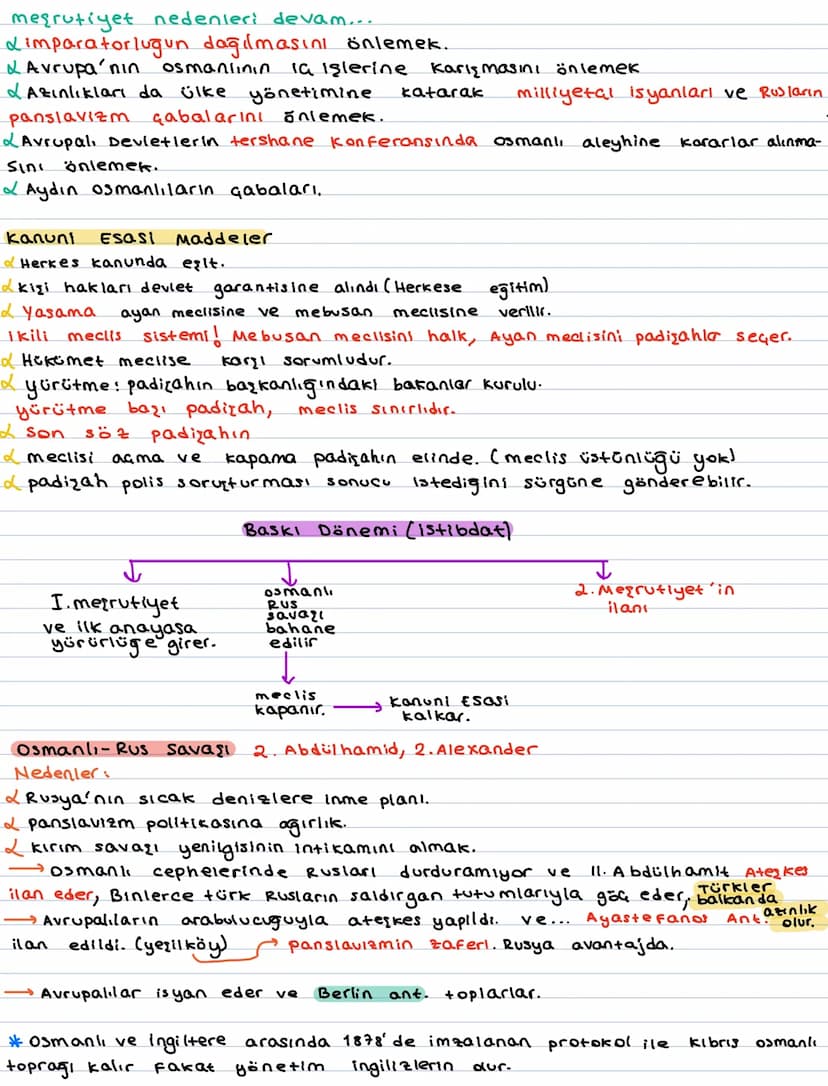 meşrutiyet nedenleri devam...
imparatorluğun dağılmasını önlemek.
Avrupa'nın osmanlının iç işlerine karışmasını önlemek
Azınlıkları da ülke yönetimine katarak milliyetçi isyanları ve Rusların
panslavizm çabalarını önlemek.
Avrupalı Devletlerin tershane Konferansında osmanlı aleyhine kararlar alınma-
sını önlemek.
Aydın osmanlıların çabaları.
Kanuni Esasi Maddeler
Herkes kanunda eşit.
kişi hakları devlet garantisine alındı (Herkese eğitim)
Yasama ayan meclisine ve mebusan meclisine verilir.
ikili meclis sistemi! Mebusan meclisini halk, Ayan meclisini padişahlar seçer.
Hükümet meclise karşı sorumludur.
yürütme: padişahın başkanlığındaki bakanlar kurulu.
yürütme başı padişah, meclis sınırlıdır.
Son söz padişahın
meclisi açma ve kapama padişahın elinde. (meclis üstünlüğü yok)
padişah polis soruşturması sonucu istediğini sürgüne gönderebilir.
Baskı Dönemi (istibdat)
I. meşrutiyet
ve ilk anayasa
yürürlüğe girer.
osmanlı
Rus
savaşı
bahane
edilir
meclis
kapanır.
Kanuni Esasi
kalkar.
2. Meşrutiyet'in
ilanı
Osmanlı-Rus Savaşı 2. Abdülhamid, 2. Alexander
Nedenler:
Rusya'nın sıcak denizlere inme planı.
panslavizm politikasına ağırlık.
kırım savaşı yenilgisinin intikamını almak.
→ osmanlı cephelerinde Rusları durduramıyor ve II. Abdülhamit Ateşkes
ilan eder, Binlerce türk Rusların saldırgan tutumlarıyla göç eder, Türkler balkanda azınlık olur.
→ Avrupalıların arabulucuğuyla ateşkes yapıldı. ve... Ayastefanos Ant.
ilan edildi. (yeşilköy) → panslavizmin zaferi. Rusya avantajda.
→ Avrupalılar isyan eder ve Berlin ant. toplarlar.
* Osmanlı ve İngiltere arasında 1878'de imzalanan protokol ile Kıbrıs osmanlı
toprağı kalır Fakat yönetim ingilizlerin olur.